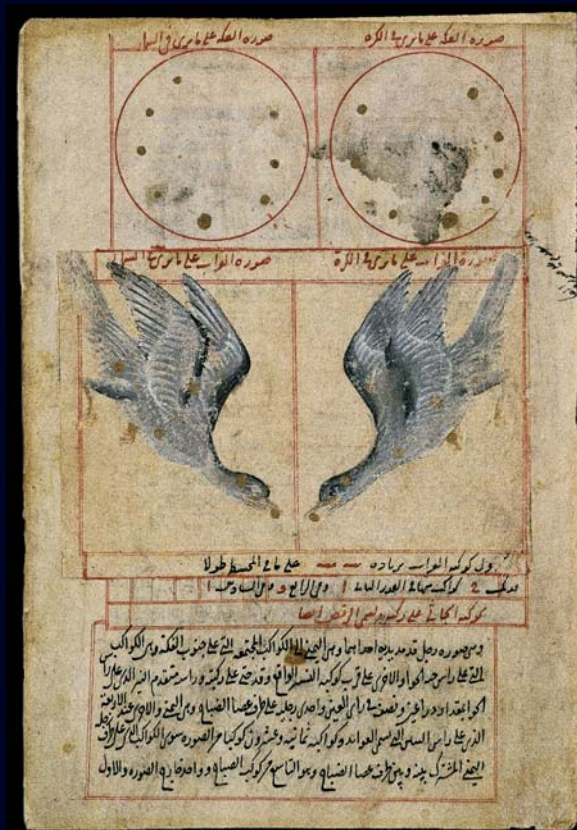 صورة الفكه على ما يرى فى الكرة
صورة الفكه على ما يرى فى السما
صورة الغراب على ما يرى فى الكرة
صورة الغراب على ما يرى فى السما
كوكبة الغراب بزياده على ما فى المجسطى طولا
كواكب منها فى القدر الثالث ا وفى الرابع و وفى السادس ا
كوكبة الجاثى على ركبتيه ويسمى الراقص ايضا
وهى صورة رجل قد مد يديه احداهما وهى اليمنى الى الكواكب المجتمعة التى على جنوب الفكة وهى الكواكب
التى على راس حية الحوا والاخرى على قرب كوكبة النسر الواقع وقد جثى على ركبتيه وراسه متقدم النير الذى على راس
الحوا بمقدار ذراعين ونصف فى راى العين واحدى رجليه على طرف عصا الضباح وهى اليمنى والاخرى عند الاربعة
التى على راس التنين التى تسمى العوائذ وكواكبه ثمانيه وعشرون كوكبا من الصورة سوى الكواكب التى على طرف
اليمنى المشترك بينه وبين طرف عصا الضباح وهو التاسع من كوكبة الضباح وواحد خارج الصورة والاول